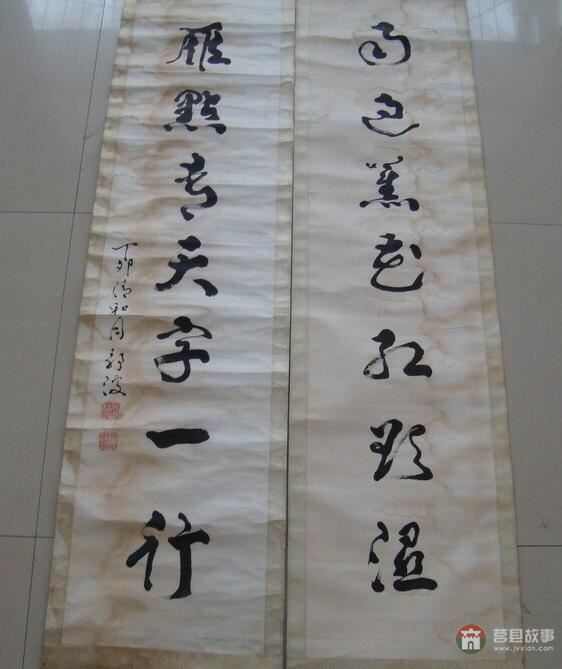 雨過蕉花紅欲濕
雁點青天字一行
丁卯清和月
莒县故事
www.jvxian.com